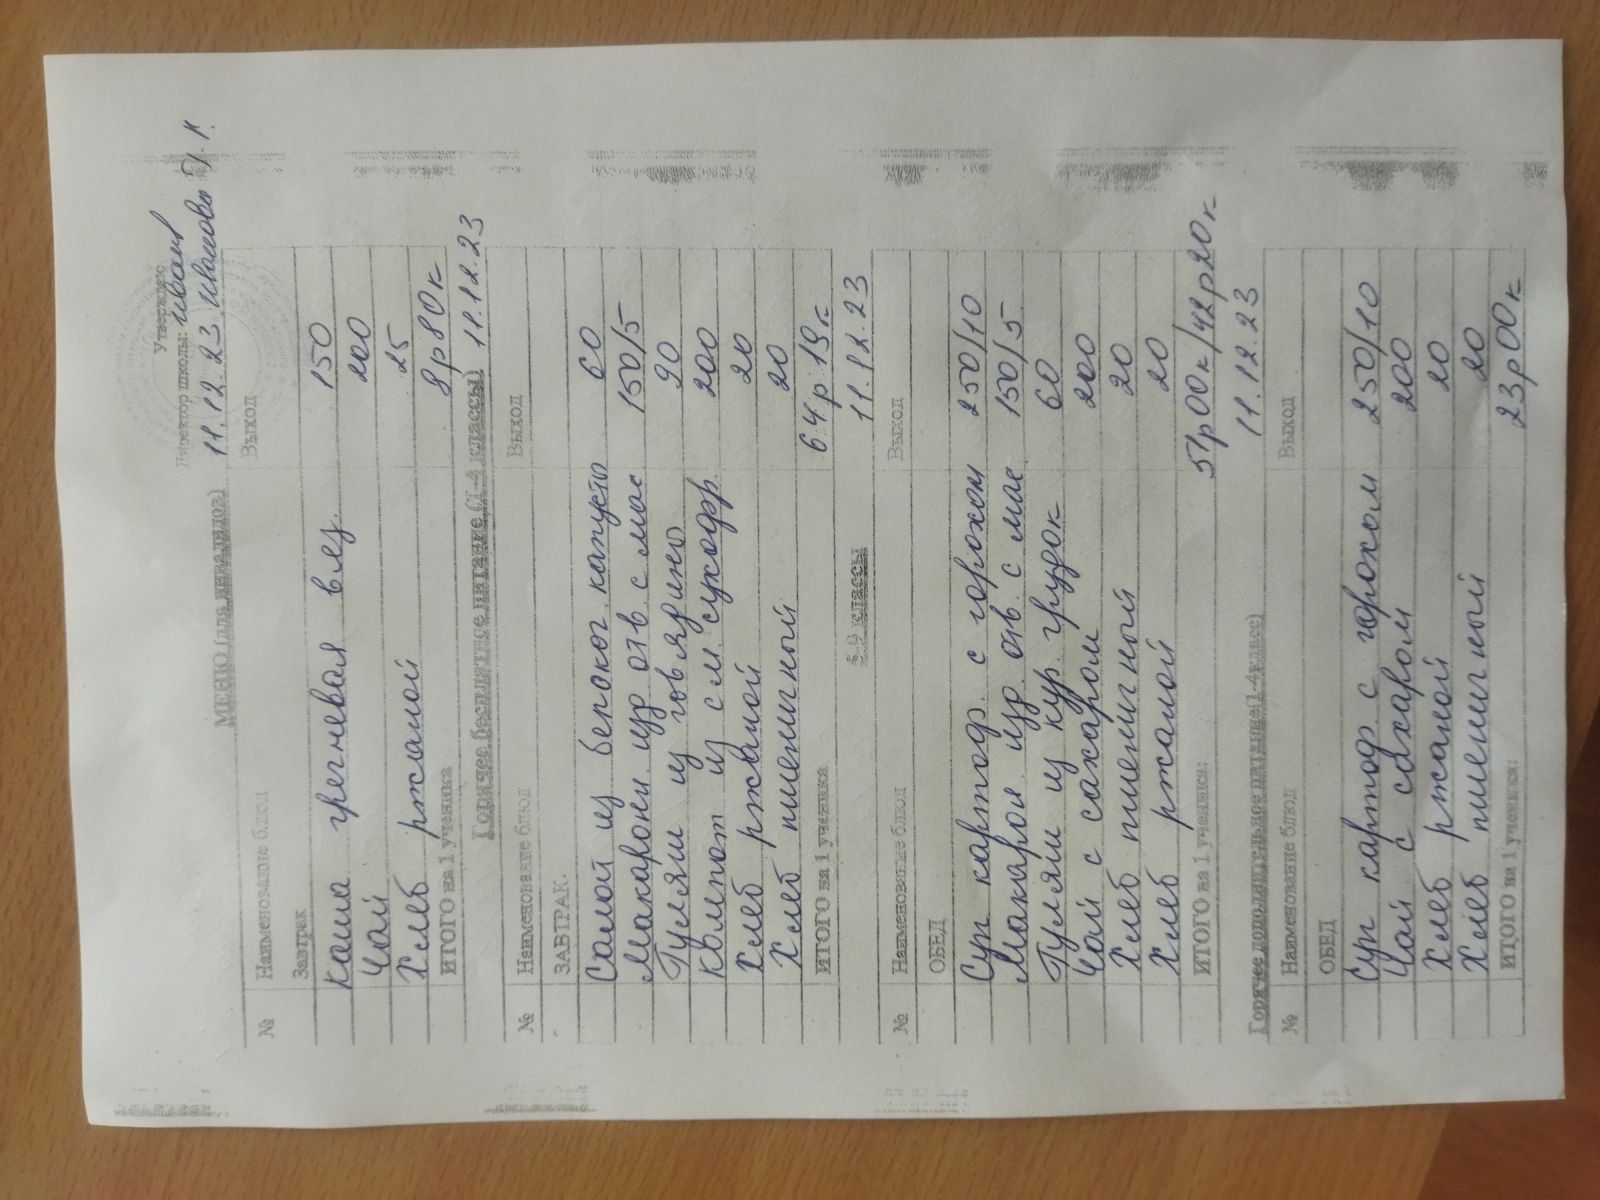 Утверждаю
Директор школы: Иванов
11.12.23 Иванова Э. К.
МЕНЮ (для инвалидов)
№ Наименование блюд Выход
Завтрак
Каша гречневая вяз. 150
Чай 200
Хлеб ржаной 25
ИТОГО на 1 ученика 8р80к
Горячее бесплатное питание (1-4 классы) 11.12.23
№ Наименование блюд Выход
ЗАВТРАК.
Салат из белокоч. капусты 60
Макароны изд отв с мас 150/5
Гуляш из говядины 90
Компот из см. сухофр. 200
Хлеб ржаной 20
Хлеб пшеничной 20
ИТОГО на 1 ученика 64р 19к
5-9 классы 11.12.23
№ Наименование блюд Выход
ОБЕД
Суп картоф. с горохом 250/10
Макарон изд. отв. с мас 150/5
Гуляш из кур. грудок 60
Чай с сахаром 200
Хлеб пшеничной 20
Хлеб ржаной 20
ИТОГО на 1 ученика: 51р00к/42р20к
11.12.23
Горячее дополнительное питание(1-4класс)
№ Наименование блюд Выход
ОБЕД
Суп картоф с горохом 250/10
Чай с сахаром 200
Хлеб ржаной 20
Хлеб пшеничной 20
ИТОГО на 1 ученика: 23р00к